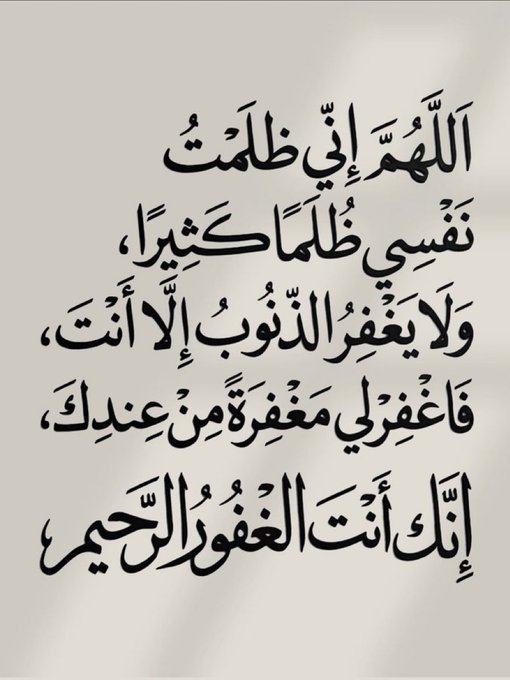 اَللَّهُمَّ إِنِّي ظلَمْتُ
نَفْسِي ظُلَمًا كَثِيرًا،
وَلَا يَغْفِرُ الذّنُوبُ إِلَّا أَنْتَ،
فَاغْفِرْلي مَغْفِرَةً مِنْ عِندِكَ،
إِنَّكَ أَنْتَ الْغْفُورُ الرَّحيم